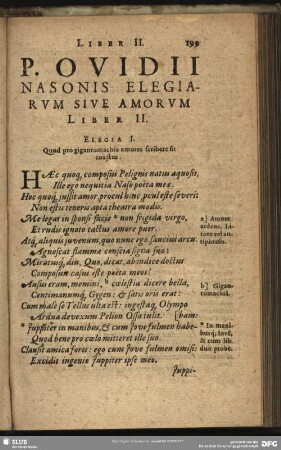 LIBER II. 199
P. OVIDII
NASONIS ELEGIA-
RVM SIVE AMORVM
LIBER II.
ELEGIA I.
Quod pro gigantomachia amores scribere sit
coactus.
HÆc quoq, composui Pelignis natus aquosis,
Ille ego nequitiæ Naso poëta meæ.
Hoc quoq, jussit amor. procul hinc, pcul este severi:
Non estis teneris apta theatra modis.
Me legat in sponsi facie a non frigida virgo,
Et rudis ignoto tactus amore puer.
Atq, aliquis juvenum, quo nunc ego, saucius arcu
Agnoscat flammæ conscia signa suæ:
Miratusq, diu, Quo, dicat, ab indice doctus
Composuit casus iste poëta meos?
Ausus eram, memini, b cælestia dicere bella,
Centimanumq, Gygen: & satis oris erat:
Cum malè se Tellus ulta est: ingestaq, Olympo
Ardua devexum Pelion Ossa tulit. (bam:
* Juppiter in manibus, & cum Jove fulmen habe-
Quod bene pro cælo mitteret ille suo.
Clausit amica fores: ego cum Jove fulmen omisi:
Excidit ingenio Juppiter ipse meo.
Juppi-
a] Amore
ardens,
b] Gigan-
tomachia.
* In mani-
busq;
& cum
duo probè.
SLUB
DFG